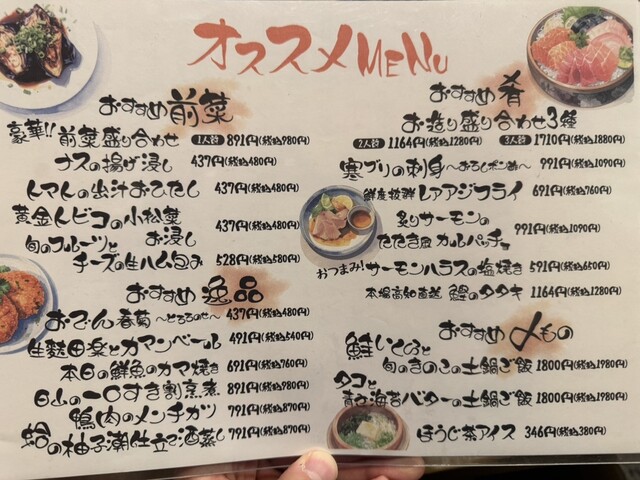 オススメMENU
おすすめ 前菜
豪華!! 前菜盛り合わせ 1人前 891円(税込980円)
ナスの揚げ浸し 437円(税込480円)
トマトの出汁おひたし 437円(税込480円)
黄金トビコの小松菜お浸し 437円(税込480円)
旬のフルーツとチーズの生ハム包み 528円(税込580円)
おすすめ 逸品
おでん春菊 〜とろろのせ〜 437円(税込480円)
生麩田楽とカマンベール 491円(税込540円)
本日の鮮魚のカマ焼き 691円(税込760円)
白山の一〇すき割烹煮 891円(税込980円)
鴨肉のメンチカツ 791円(税込870円)
蛤の柚子潮仕立て酒蒸し 791円(税込870円)
おすすめ 肴
お造り盛り合わせ3種
2人前 1164円(税込1280円) 3人前 1710円(税込1880円)
寒ブリの刺身 〜おろしポン酢〜 991円(税込1090円)
鮮度抜群 レアアジフライ 691円(税込760円)
炙りサーモンの
たたき風 カルパッチョ 991円(税込1090円)
おつまみ! サーモンハラスの塩焼き 591円(税込650円)
本場高知直送 鰹のタタキ 1164円(税込1280円)
おすすめ 〆もの
鮭いくらと
旬のきのこの土鍋ご飯 1800円(税込1980円)
タコと
青海苔バターの土鍋ご飯 1800円(税込1980円)
ほうじ茶アイス 346円(税込380円)